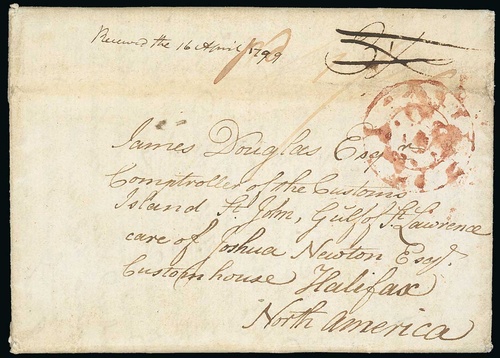 Received the 16 April 1799
James Douglas Esqr
Comptroller of the Customs
Island St John, Gulf of St Lawrence
care of Joshua Newton Esqr.
Customhouse Halifax
North america